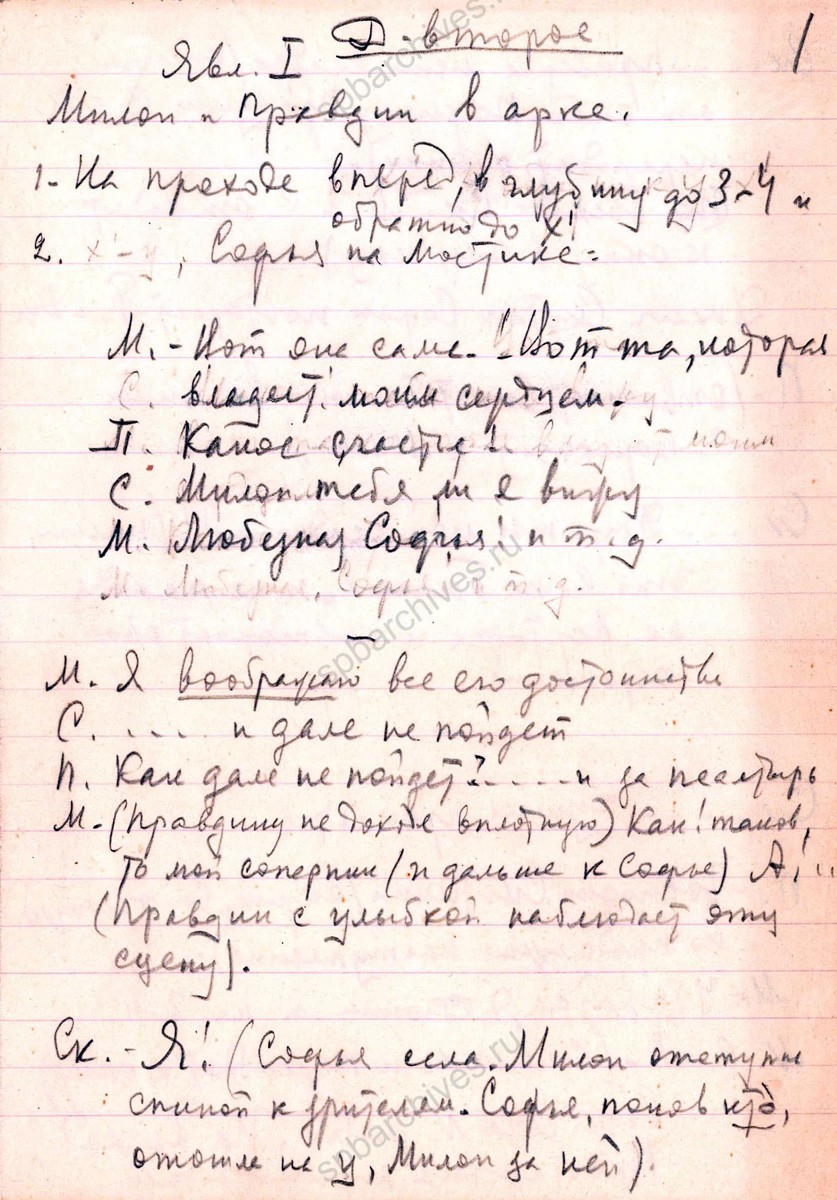 Д. второе
1
Явл. I
Милон и Правдин в арке.
1 - На проходе вперед, в глубину до 3-4 и
обратно до х'
2. х'-у, Софья на мостике =
М. - Вот она сама! Вот та, которая
С. владеет моим сердцем.
П. Какое счастье!
С. Милон тебя ли я вижу
М. Любезная Софья! и т.д.
М. Любезная, Софья и т.д.
М. Я воображаю все его достоинства
С. .... и дале не пойдет
П. Как дале не пойдет? ..... и за псалтырь
М - (Правдину не доходя вплотную) Как! таков,
то мой соперник (и дальше к Софье) А! ..
(Правдин с улыбкой наблюдает эту
сцену).
Ск. - Я! (Софья села. Милон отступил
спиной к зрителям. Софья, поняв кто,
отошла на у, Милон за ней).
spbarchives.ru
spbarchives.ru
spbarchives.ru
spbarchives.ru